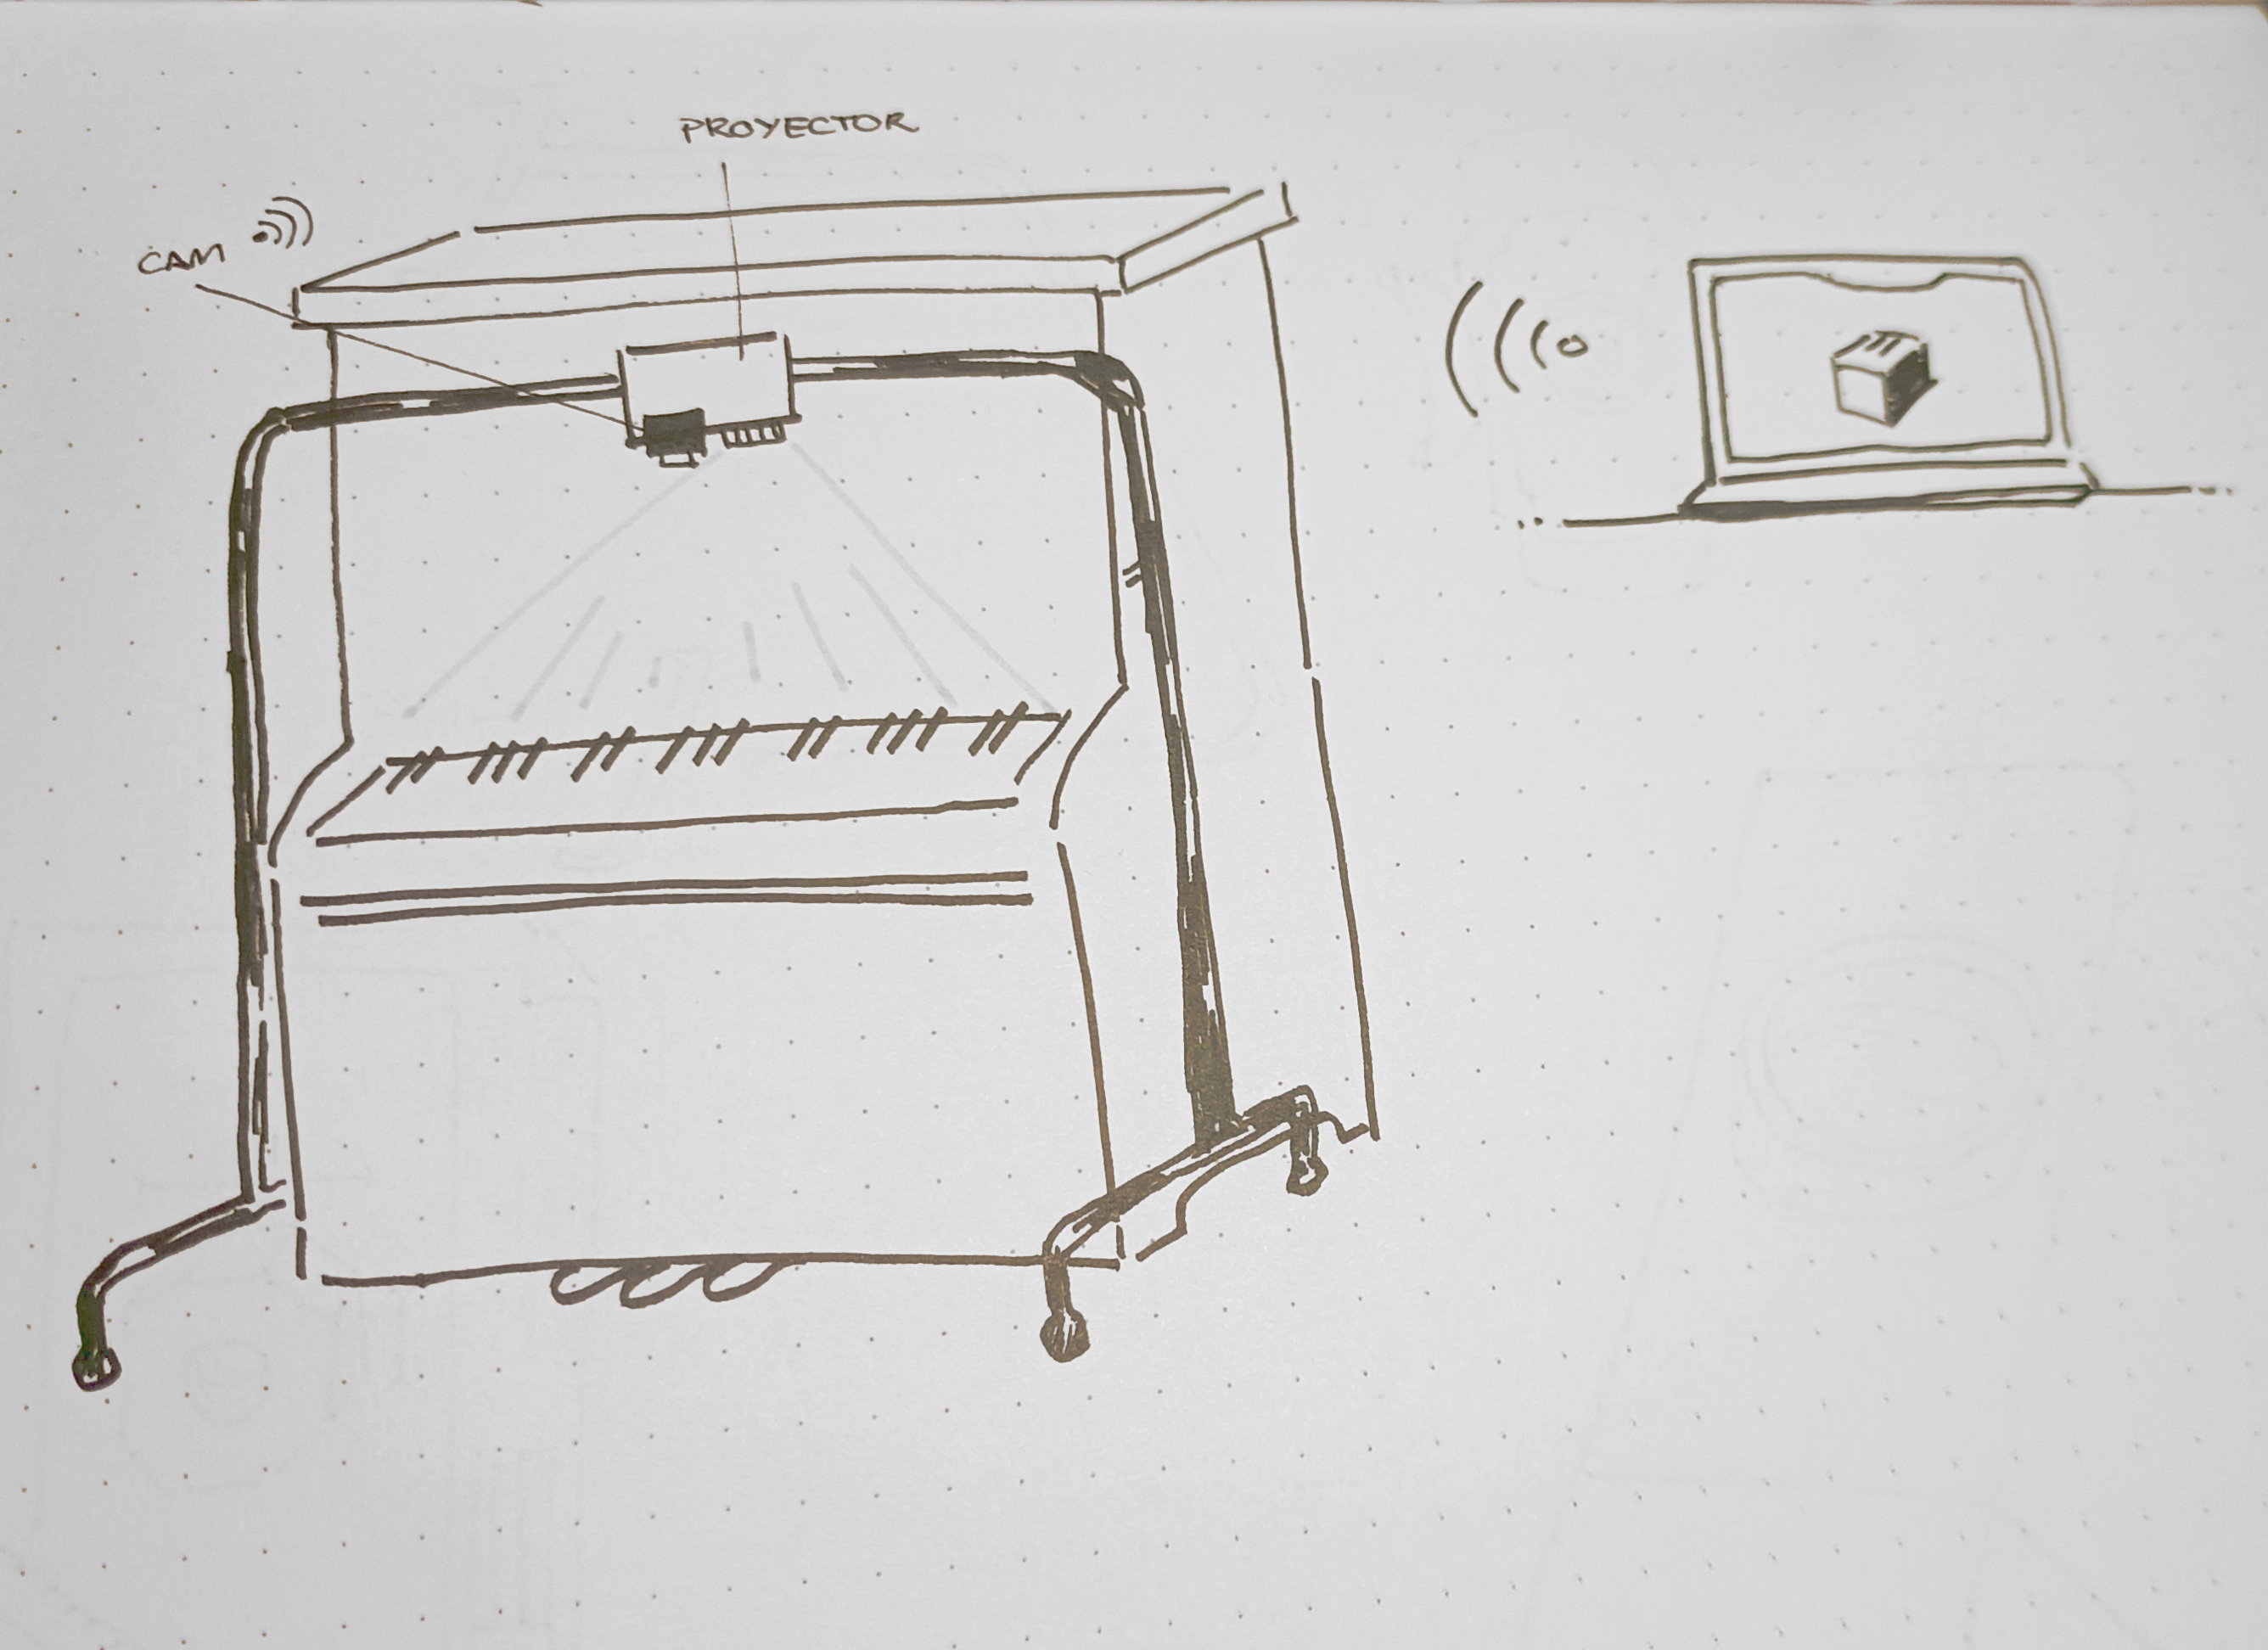 PROYECTOR
CAM